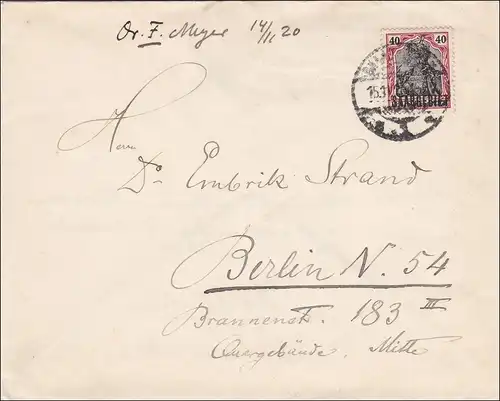 Dr. F. Meyer 14/11 20
40 40
SAARGEBIET
Herrn
Dr. Embrik Strand
Berlin N. 54
Brannenstr. 183 III
Quergebäude, Mitte